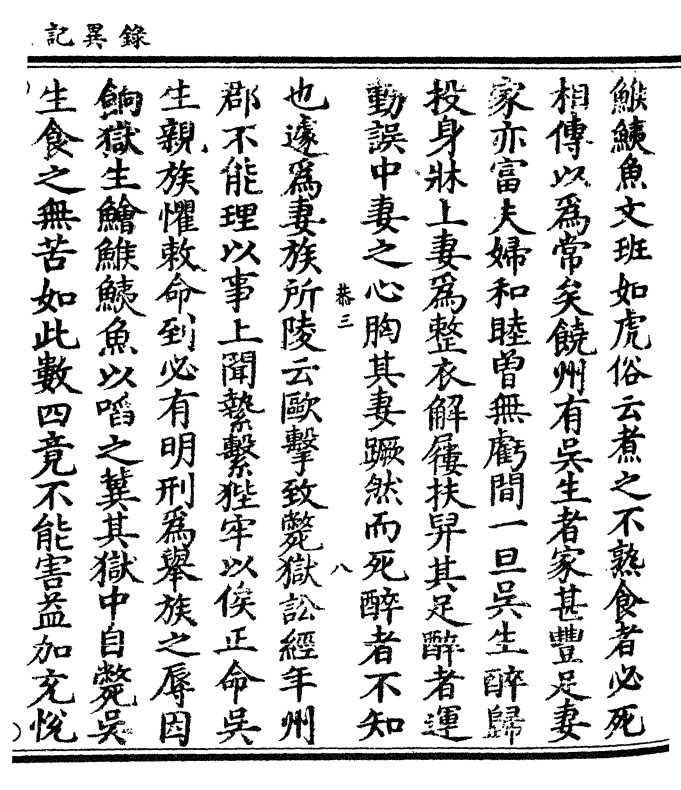 錄異記
鯸鮧魚文班如虎俗云煮之不熟食者必死
相傳以爲常矣饒州有吳生者家甚豐足妻
家亦富夫婦和睦曽無虧間一旦吳生醉歸
投身牀上妻爲整衣解屨扶舁其足醉者運
動誤中妻之心胷其妻蹶然而死醉者不知
恭三
八
也遽爲妻族所陵云歐擊致斃獄訟經年州
郡不能理以事上聞縶繫狴牢以俟正命吳
生親族懼敕命到必有明刑爲舉族之辱因
餉獄生鱠鯸鮧魚以啗之冀其獄中自斃吳
生食之無苦如此數四竟不能害益加充悅